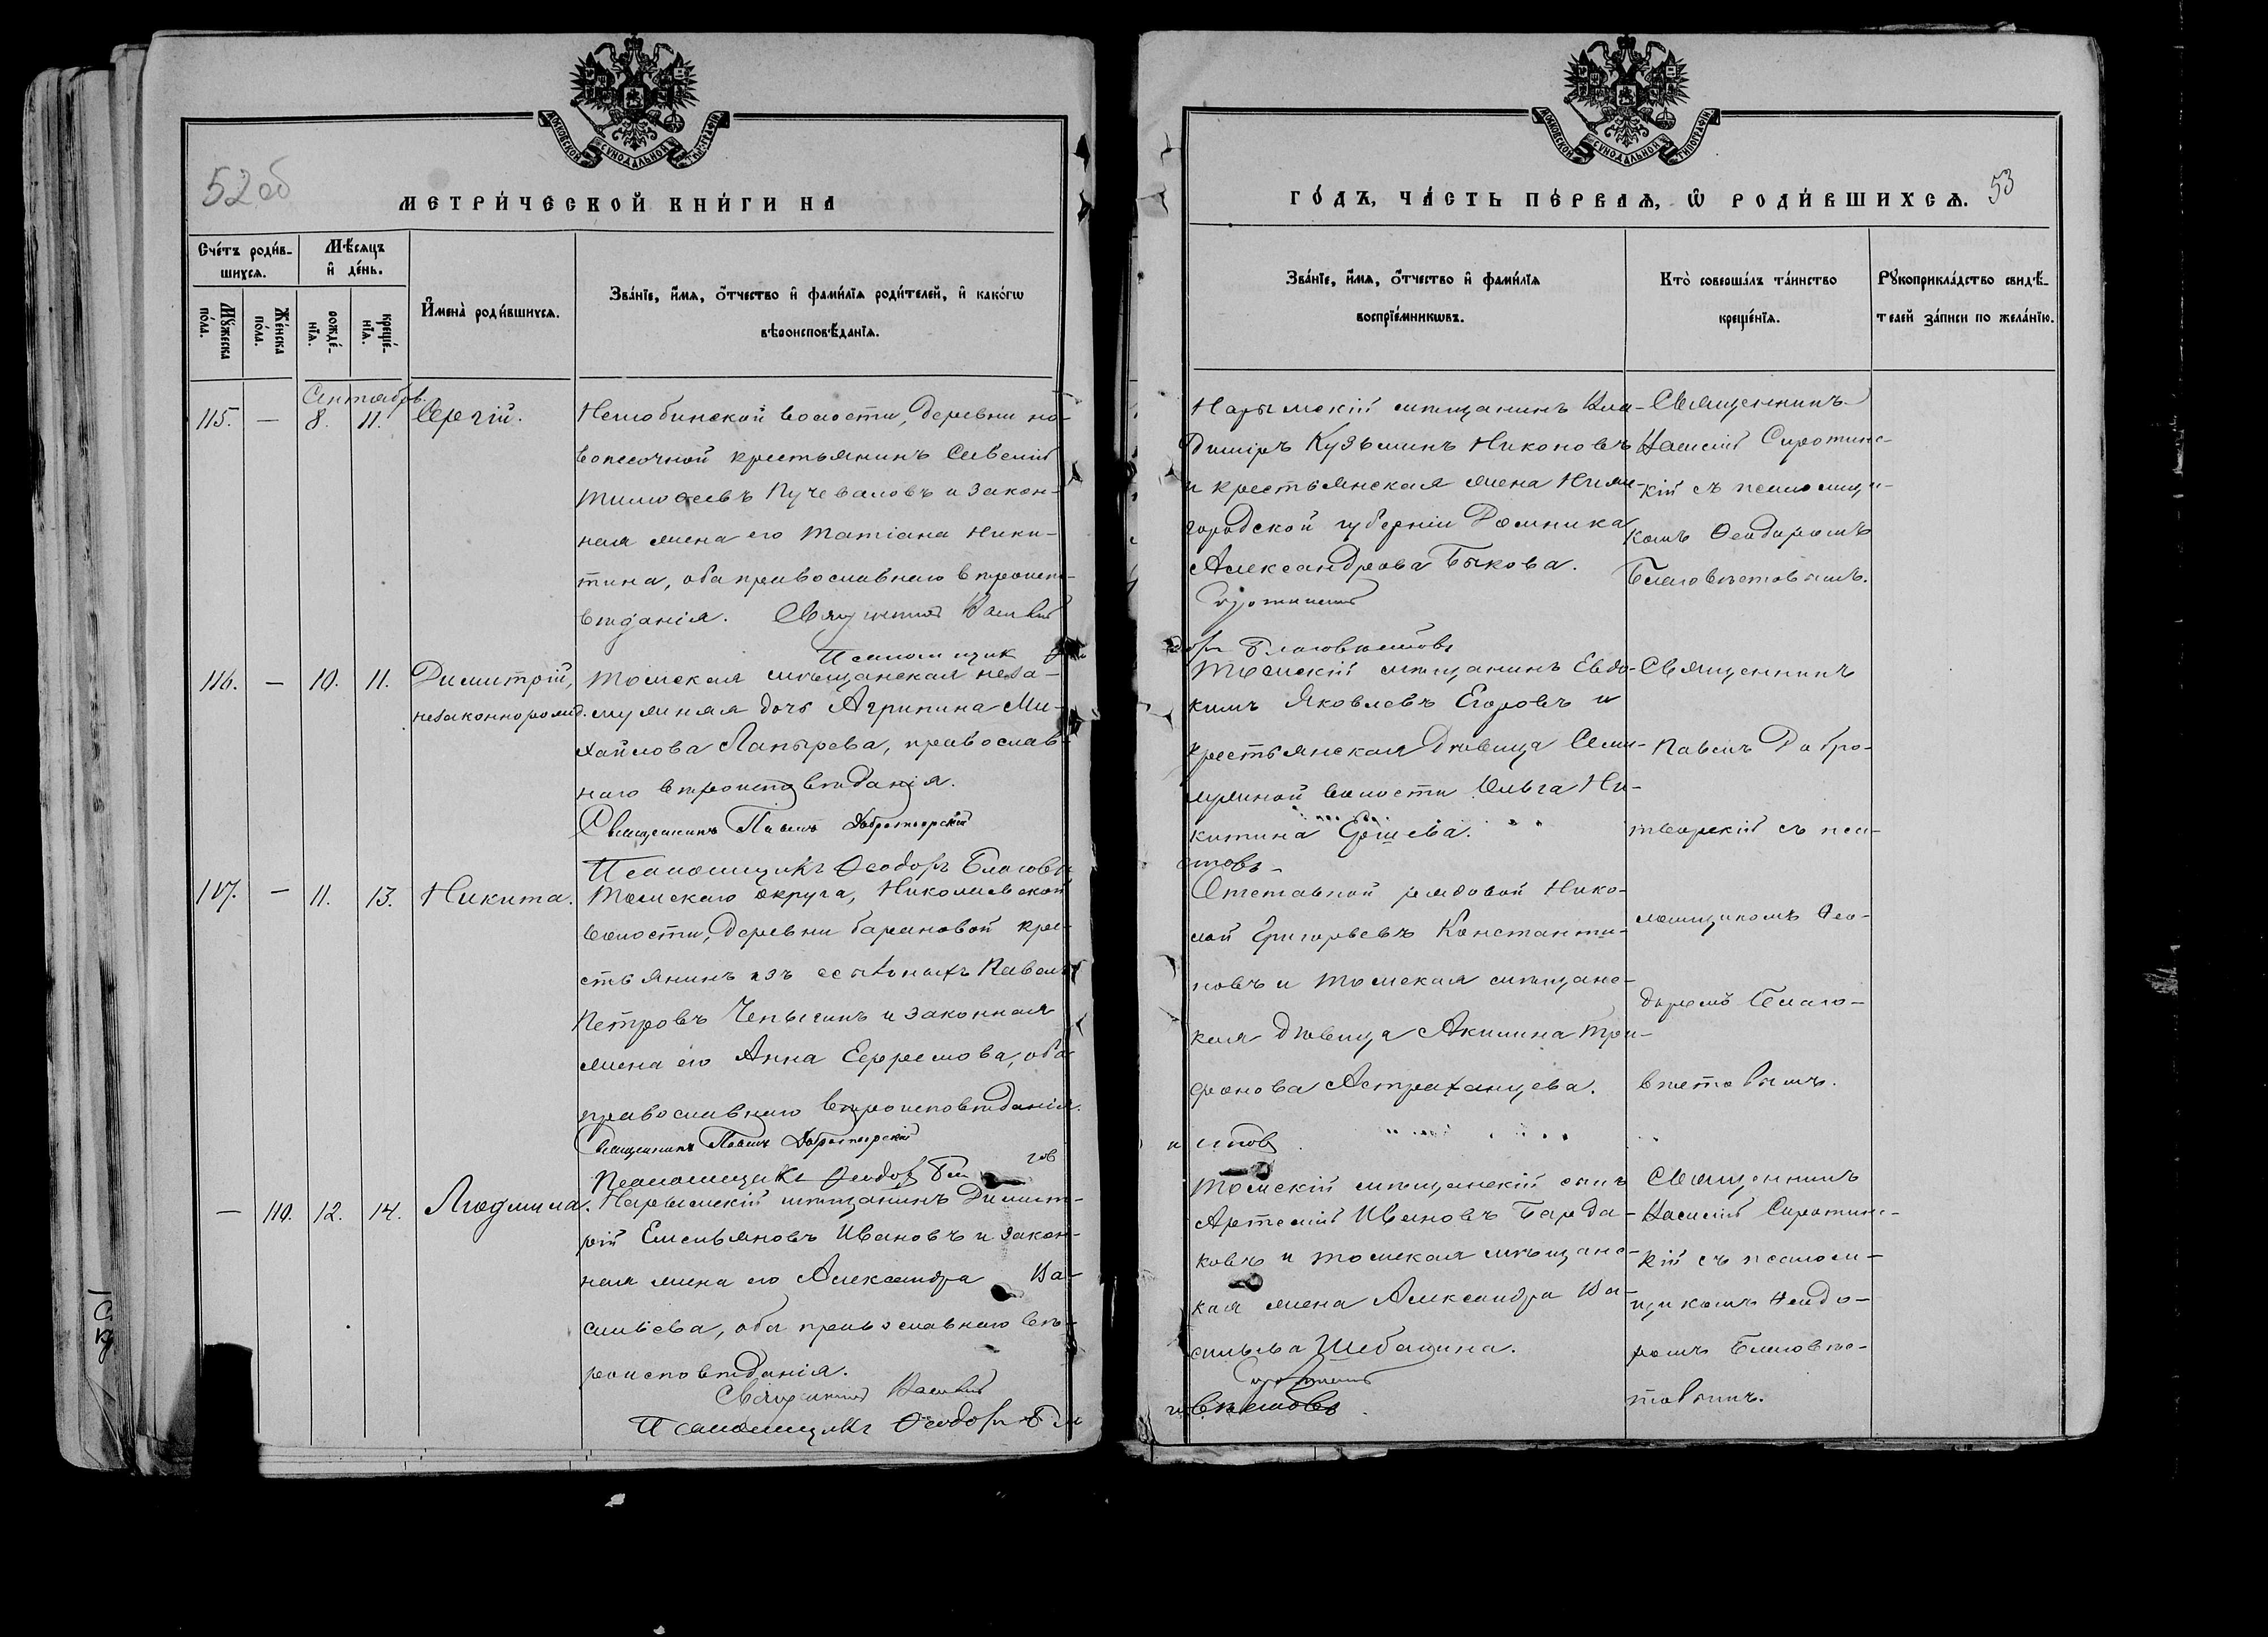 МОСКОВСКОЙ СУНОДАЛЬНОЙ ТИПОГРАФІИ
52 об
МЕТРИ́ЧЕСКОЙ КНИ́ГИ НА
Сче́тъ роди́в-
шихсѧ.
Мѣ́сѧцъ
и҆ де́нь.
Мꙋ́жеска
по́ла.
Же́нска
по́ла.
рожде́-
нїѧ.
креще́-
нїѧ.
И҆мена̀ роди́вшихсѧ.
Зва́нїе, и҆́мѧ, ѻ҆́тчество и҆ фами́лїѧ роди́телей, и҆ како́гѡ
вѣроисповѣ́данїѧ.
Сентябрь.
115. — 8. 11. Сергій.
Нелюбинской волости, деревни но-
вопесочной крестьянинъ Савелій
Тимоѳеевъ Пучеваловъ и закон-
ная жена его Татіана Ники-
тина, оба православнаго вѣроисп-
вѣданія. Священникъ Василій
Псаломщик
116. — 10. 11. Димитрій,
незаконнорожд.
Томская мѣщанская неза-
мужняя дочь Агрипина Ми-
хайлова Лапырева, православ-
наго вѣроисповѣданія.
Священникъ Павелъ Добротворскій
Псаломщикъ Ѳеодоръ Благовѣ
117. — 11. 13. Никита.
Томскаго округа, Николаевской
волости, деревни Барановой кре-
стьянинъ изъ ссыльныхъ Павелъ
Петровъ Чепыгинъ и законная
жена его Анна Ефремова, оба
православнаго вѣроисповѣданія.
Священникъ Павелъ Добротворскій
Псаломщикъ Ѳеодоръ Бла гов
— 110. 12. 14. Людмила.
Нарымскій мѣщанинъ Димит-
рій Емельяновъ Ивановъ и закон-
ная жена его Александра Ва-
сильева, оба православнаго вѣ-
роисповѣданія.
Священникъ Василій
Псаломщикъ Ѳеодоръ Бла
МОСКОВСКОЙ СУНОДАЛЬНОЙ ТИПОГРАФІИ
ГО́ДЪ, ЧА́СТЬ ПЕ́РВАѦ, Ѡ҆ РОДИ́ВШИХСѦ. 53
Зва́нїе, и҆́мѧ, ѻ҆́тчество и҆ фами́лїѧ
воспрїе́мникѡвъ.
Кто̀ соверша́лъ та́инство
креще́нїѧ.
Рꙋкоприкла́дство свидѣ́-
телей за́писи по жела́нїю.
Нарымскій мѣщанинъ Вла-
диміръ Кузьминъ Никоновъ
и крестьянская жена Ниже-
городской губерніи Домника
Александрова Быкова.
Сиротинскій
доръ Благовѣстовъ
Священникъ
Василій Сиротинс-
кій съ псаломщи-
комъ Ѳеодоромъ
Благовѣстовымъ.
Томскій мѣщанинъ Евдо-
кимъ Яковлевъ Егоровъ и
крестьянская дѣвица Семи-
лужной волости Ольга Ни-
китина Ершева.
стовъ
Священникъ
Павелъ Добро-
творскій съ пса-
ломщикомъ Ѳео-
доромъ Благо-
вѣстовымъ.
Отставной рядовой Нико-
лай Григорьевъ Константи-
новъ и томская мѣщанс-
кая дѣвица Акилина Три-
фонова Астраханцева.
Томскій мѣщанскій сынъ
Артемій Ивановъ Бардо-
ковъ и томская мѣщанс-
кая жена Александра Ва-
сильева Шебалина.
Сиротинскій
говѣстовъ
Священникъ
Василій Сиротинс-
кій съ псалом-
щикомъ Ѳеодо-
ромъ Благовѣ-
стовымъ.